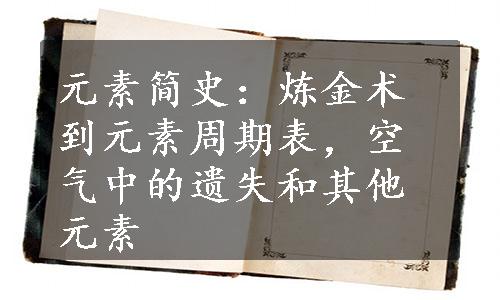 元素简史：炼金术
到元素周期表，空
气中的遗失和其他
元素